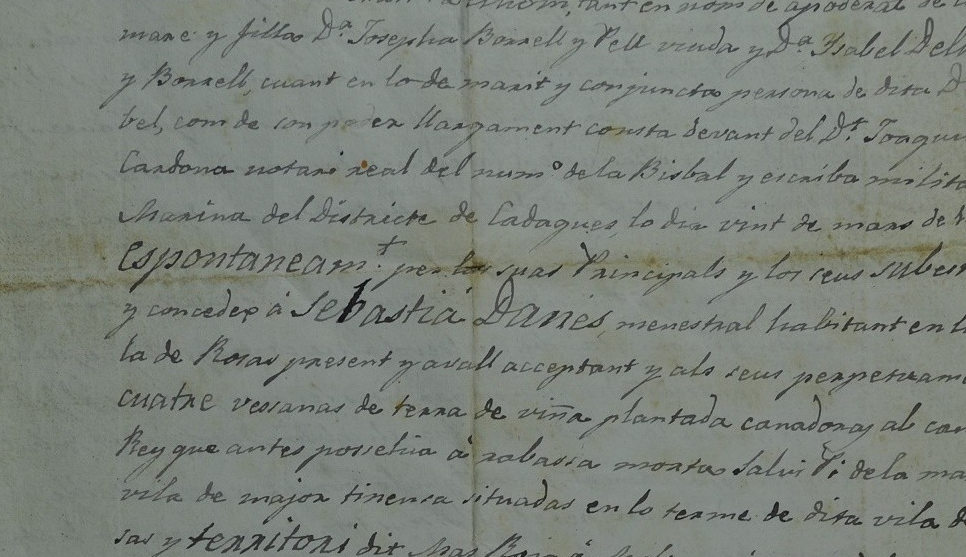 tant en nom de apoderat de
mare y filla D.ª Josepha Borrell y Vell viuda y D.ª Ysabel Dell
y Borrell, cuant en lo de marit y conjuncta persona de dita D
bel, com de son poder llargament consta devant del D.t Joaqu
Cardona notari real del num.º de la Bisbal y escriba milita
Marina del Districte de Cadaques lo dia vint de mars de
espontaneam.t per los suas Principals y los seus subes
y concedex á Sebastiá Danés menestral habitant en
la de Rosas present y avall acceptant y als seus perpetuam
cuatre vessanas de terra de viña plantada canadoras al ca
Rey que antes possehia á rabassa morta Salvi Pi de la ma
vila de major tinensa situadas en lo terme de dita vila d
sas y territori dit Mas